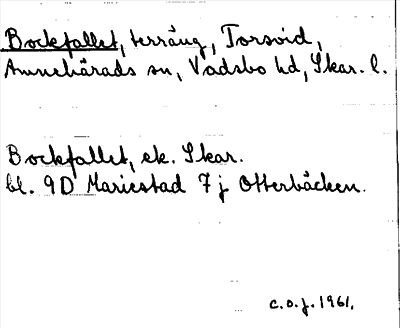 Bockfallet, terräng, Torsvid,
Amnehärads sn, Vadsbo hd, Skar. l.
Bockfallet, ek. Skar.
bl. 9D Mariestad 7j Otterbäcken.
C.O.J. 1961.